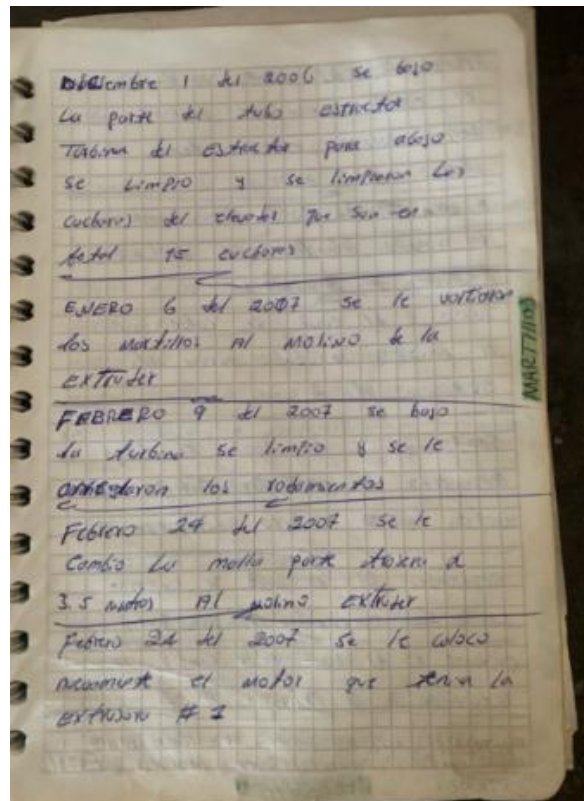 Diciembre 1 del 2006 se bajo
La parte del tubo estractor
Turbina del Estractor para abajo
se Limpio y se limpiaron Las
cucharas del elevador que son en
total 15 cucharas
ENERO 6 del 2007 se le voltiaron
los martillos Al molino de la
EXTruder
FEBRERO 9 del 2007 se bajo
la turbina se limpio y se le
arreglaron los rodamientos
Febrero 24 del 2007 se le
Cambio La malla parte trasera d
3.5 Al molino EXTruder
Febrero 24 del 2007 se le coloco
nuevamente el motor que tenia la
EXTrusora # 1
MARTILLOS